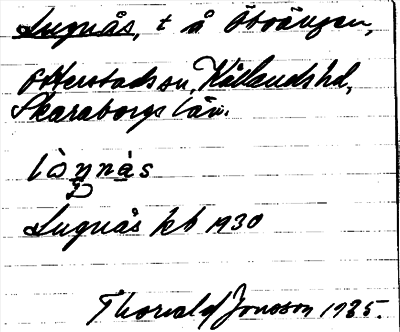 Lugnås, t å Storängen,
Otterstads sn, Kållands hd,
Skaraborgs län.
Lugnås kb 1930
Thorvald Jonsson 1935.